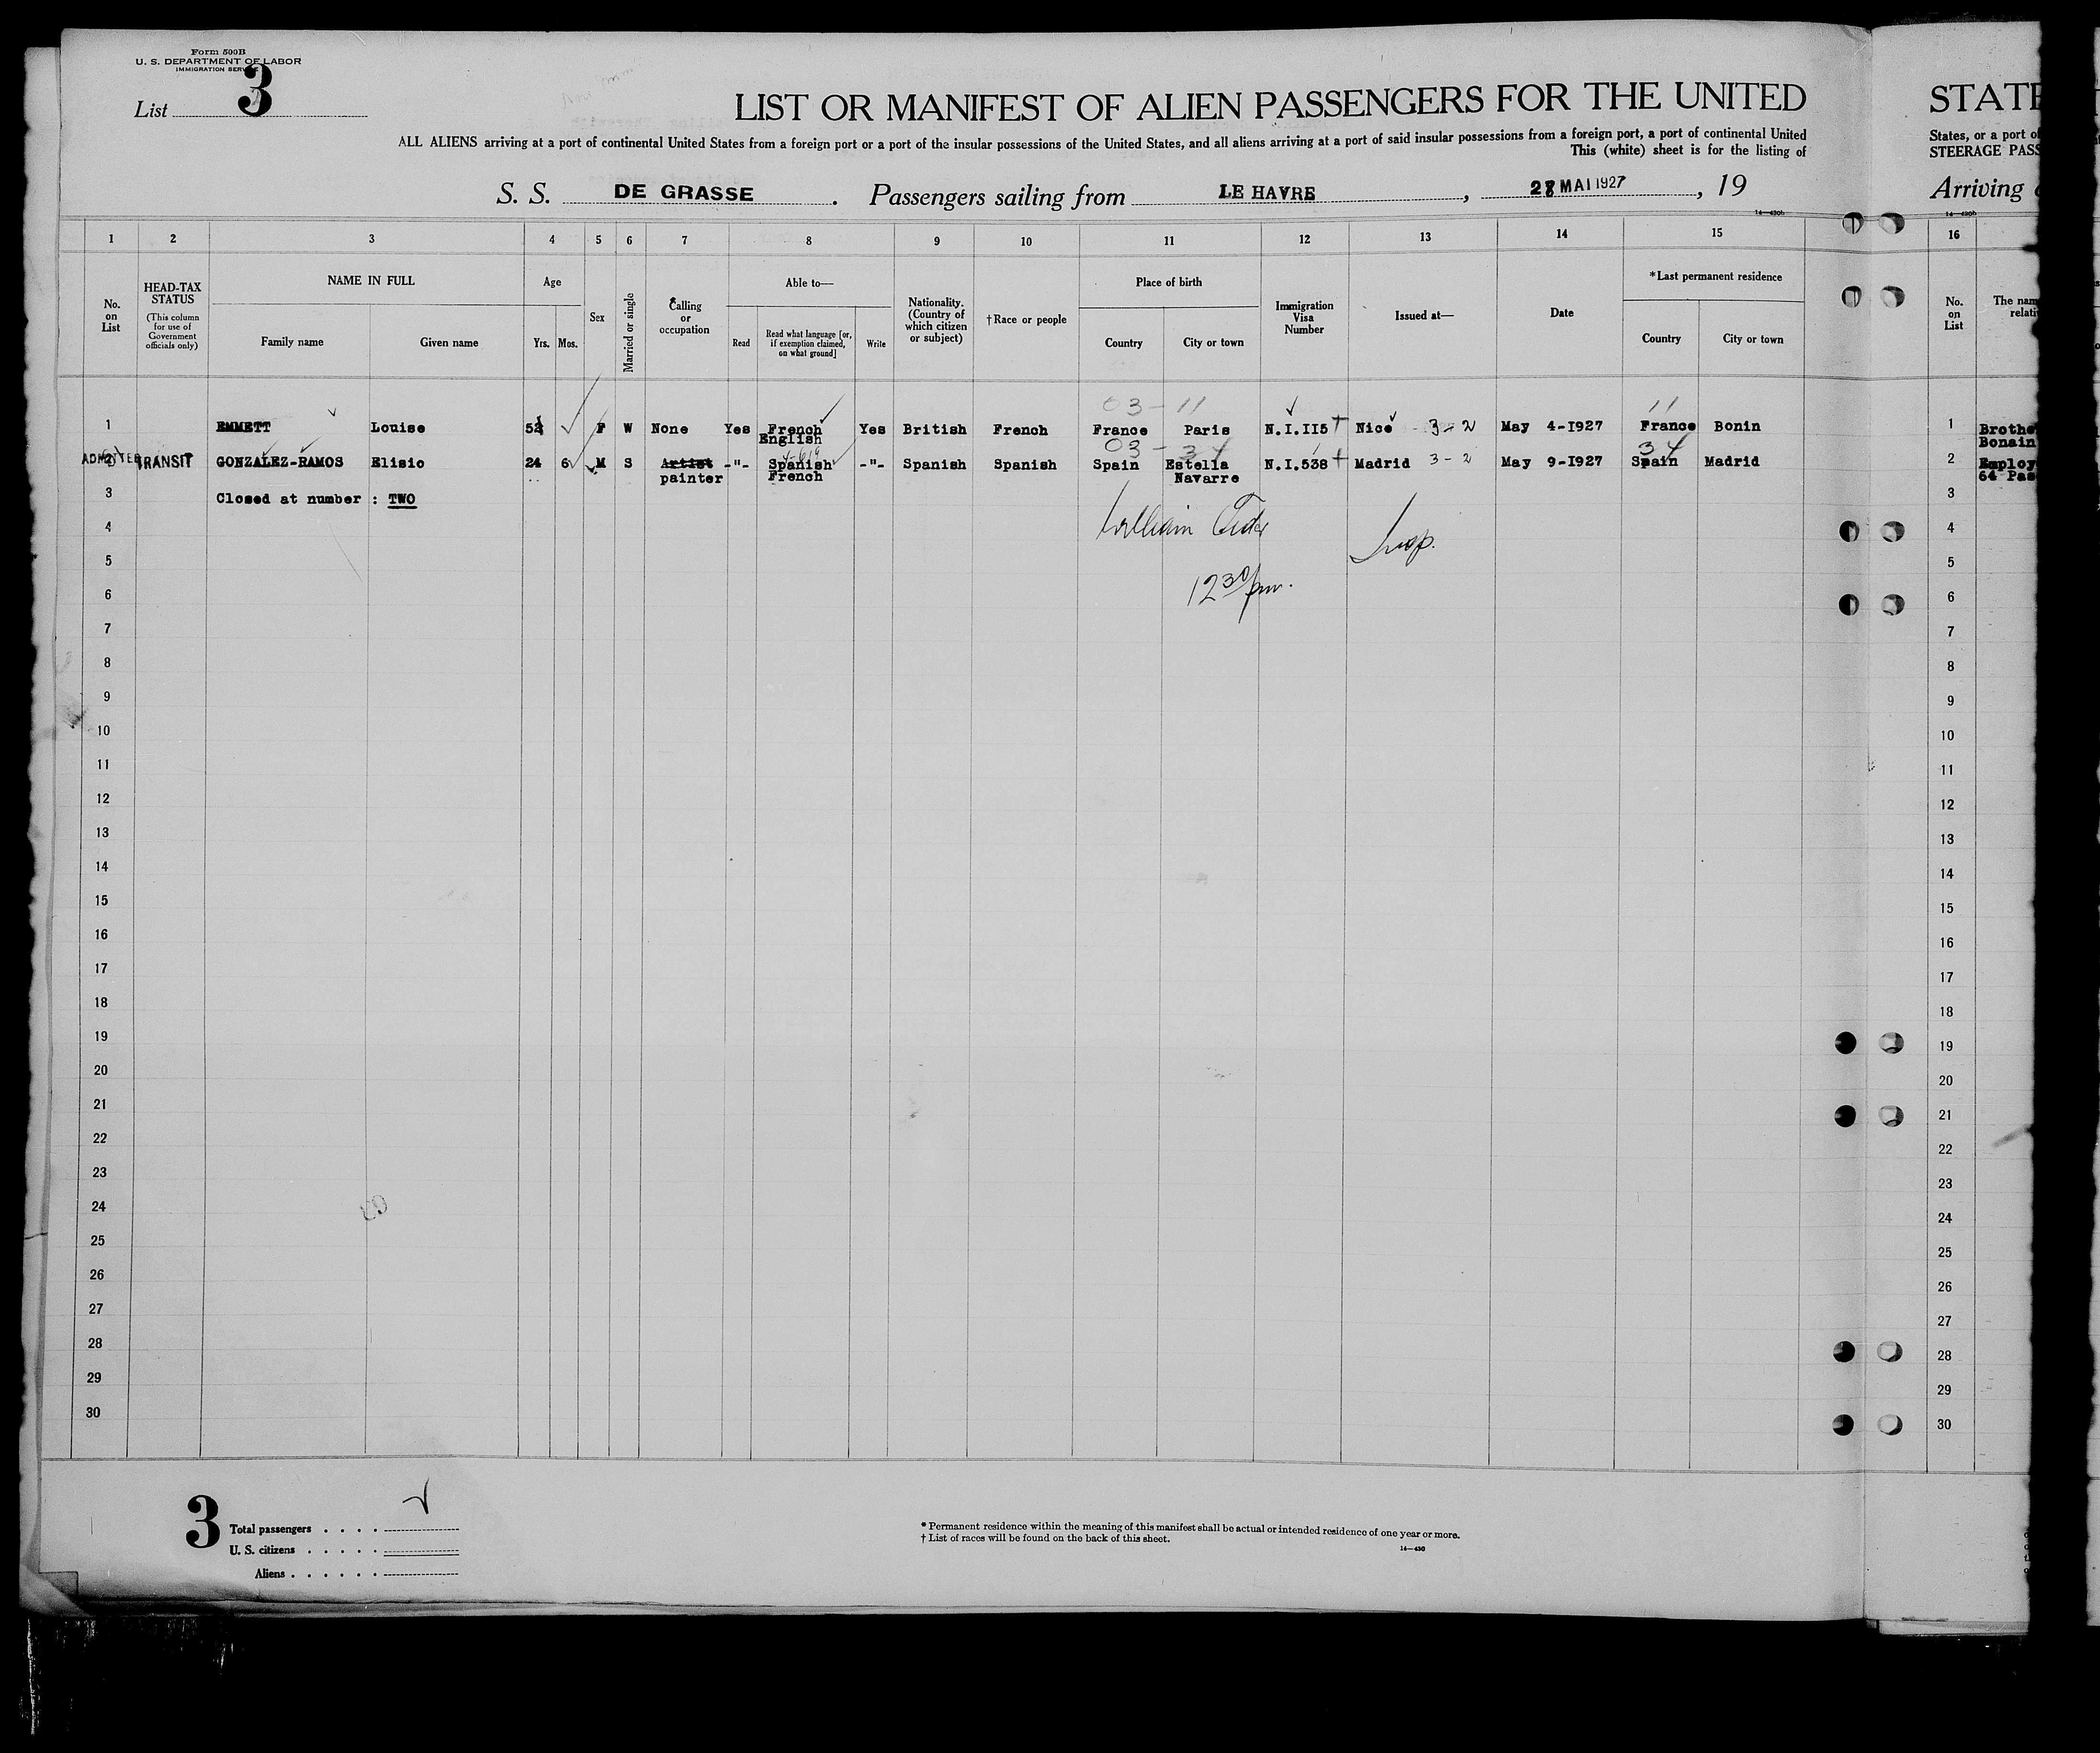 Form 500B
U. S. DEPARTMENT OF LABOR
IMMIGRATION SERVICE
List 3
LIST OR MANIFEST OF ALIEN PASSENGERS FOR THE UNITED
ALL ALIENS arriving at a port of continental United States from a foreign port or a port of the insular possessions of the United States, and all aliens arriving at a port of said insular possessions from a foreign port, a port of continental United
This (white) sheet is for the listing of
S. S. DE GRASSE. Passengers sailing from LE HAVRE, 28 MAI 1927, 19
14—430b
STATE
States, or a port of
STEERAGE PASS
Arriving
14—430b
1 2 3 4 5 6 7 8 9 10 11 12 13 14 15 16
No. on List
HEAD-TAX STATUS (This column for use of Government officials only)
NAME IN FULL
Family name Given name
Age
Yrs. Mos.
Sex
Married or single
Calling or occupation
Able to—
Read
Read what language [or, if exemption claimed, on what ground]
Write
Nationality. (Country of which citizen or subject)
†Race or people
Place of birth
Country City or town
Immigration Visa Number
Issued at—
Date
*Last permanent residence
Country City or town
No. on List
The nam
relati
03-11 11
1 EMMETT Louise F W None Yes French English Yes British French France Paris N.I.II5 Nice 3-2 May 4-I927 France Bonin 1 Brothe
Bonain
03-34 34
ADMITTED 2 TRANSIT GONZALEZ-RAMOS Elisio 24 6 M S Artist painter -"- Spanish French -"- Spanish Spanish Spain Estella Navarre N.I.538 Madrid 3-2 May 9-I927 Spain Madrid 2 Employ
64 Pas
3 Closed at number : TWO 3
4 William 4
5 Insp. 5
6 12 30 pm. 6
7 7
8 8
9 9
10 10
11 11
12 12
13 13
14 14
15 15
16 16
17 17
18 18
19 19
20 20
21 21
22 22
23 23
24 24
25 25
26 26
27 27
28 28
29 29
30 30
3
Total passengers . . . .
U. S. citizens . . . . .
Aliens . . . . . .
* Permanent residence within the meaning of this manifest shall be actual or intended residence of one year or more.
† List of races will be found on the back of this sheet.
14—430